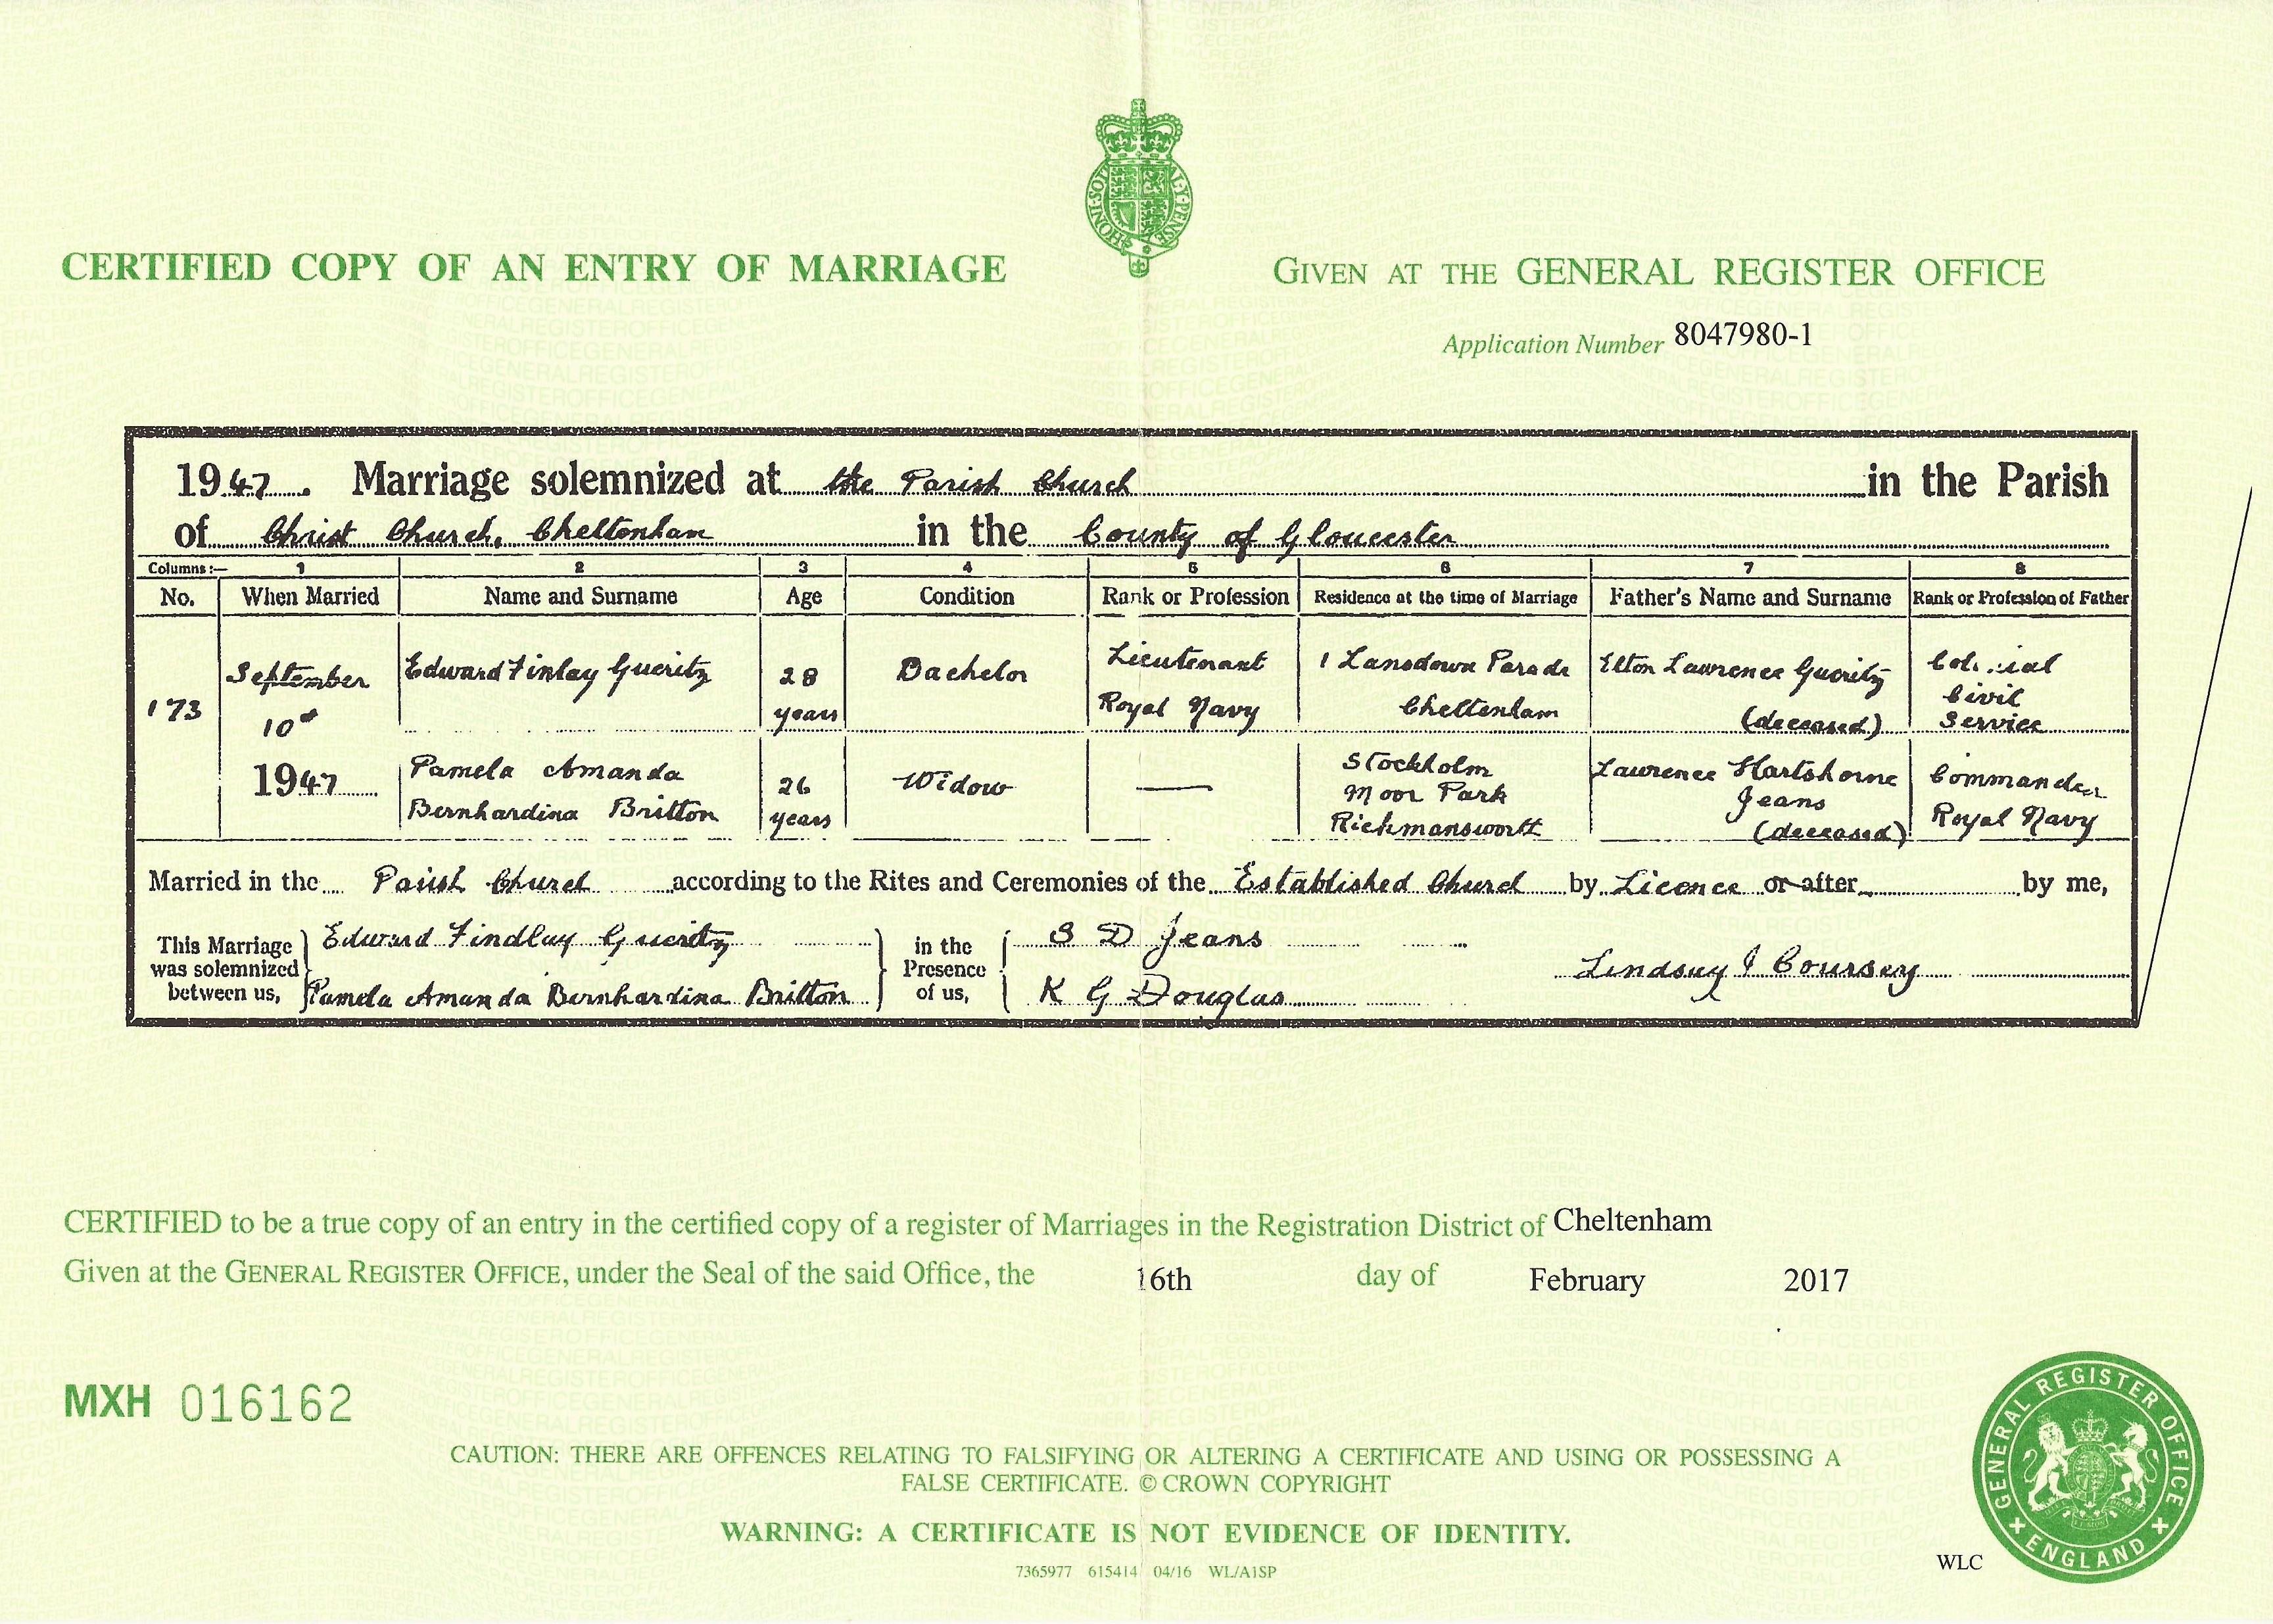 HONI·SOIT QUI MAL·Y·PENSE
CERTIFIED COPY OF AN ENTRY OF MARRIAGE
GIVEN AT THE GENERAL REGISTER OFFICE
Application Number 8047980-1
1947. Marriage solemnized at the Parish Church in the Parish
of Christ Church, Cheltenham in the County of Gloucester
Columns:— 1 2 3 4 5 6 7 8
No. When Married Name and Surname Age Condition Rank or Profession Residence at the time of Marriage Father's Name and Surname Rank or Profession of Father
173 September 10th 1947
Edward Finlay Gueritz 28 years Bachelor Lieutenant Royal Navy 1 Lansdown Parade Cheltenham Elton Lawrence Gueritz (deceased) Civil Service
Pamela Amanda Bernhardina Britton 26 years Widow — Stockholm Moor Park Rickmansworth Lawrence Hartshorne Jeans (deceased) Commander Royal Navy
Married in the Parish Church according to the Rites and Ceremonies of the Established Church by Licence or after by me,
This Marriage was solemnized between us, Edward Findlay Gueritz
Pamela Amanda Bernhardina Britton
in the Presence of us, S D Jeans
K G Douglas
Lindsay
CERTIFIED to be a true copy of an entry in the certified copy of a register of Marriages in the Registration District of Cheltenham
Given at the GENERAL REGISTER OFFICE, under the Seal of the said Office, the 16th day of February 2017
MXH 016162
CAUTION: THERE ARE OFFENCES RELATING TO FALSIFYING OR ALTERING A CERTIFICATE AND USING OR POSSESSING A
FALSE CERTIFICATE. © CROWN COPYRIGHT
WARNING: A CERTIFICATE IS NOT EVIDENCE OF IDENTITY.
7365977 615414 04/16 WL/A1SP
WLC
GENERAL REGISTER OFFICE
ENGLAND